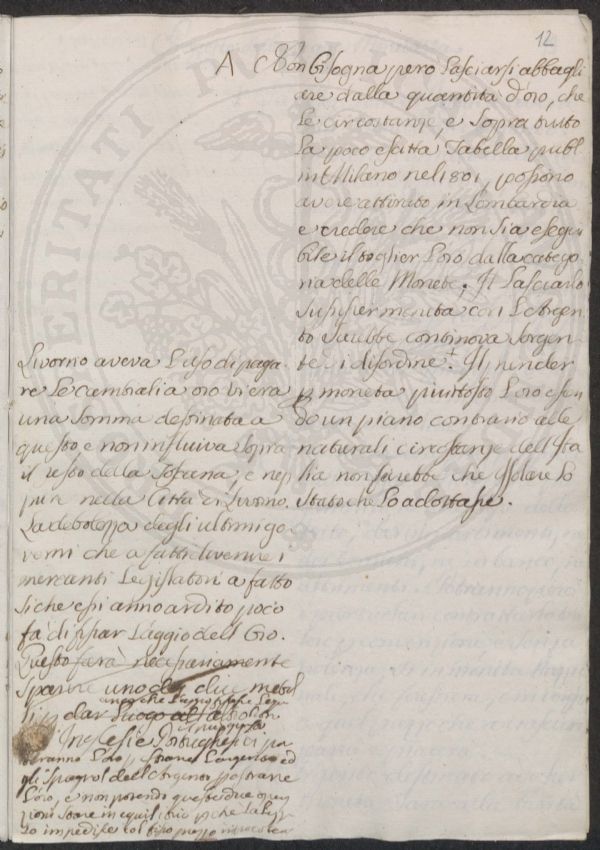 12
A Non bisogna pero lasciarsi abbagli
are dalla quantità d'oro, che
le circostanze, e sopra tutto
la poco esatta Tabella publ.
in Milano nel 1801, possono
avere attirato in Lombardia
e credere che non sia esegui
bile il toglier l'oro dalla catego
ria delle Monete; Il lasciarlo
sussister moneta con l'Argen
to sarebbe continova sorgen
te di disordine. + Il render
moneta piuttosto l'oro essen
do un piano contrario alle
naturali circostanze dell'Ita
lia non sarebbe che isolare lo
stato che lo adottasse.
Livorno aveva l'uso di paga
re le cambiali a oro vi era
una somma destinata a
questo e non influiva sopra
il resto della Toscana, e nep
pure nella Città di Livorno.
La debolezza degli ultimi go
verni che a fatti divenire i
mercanti Legislatori a fatto
si che essi anno ardito poco
fà di fissar l'aggio dell'Oro.
Questo farà necessariamente
sparire uno dei due metal
li p. dar luogo al
Inglesi e Portughesi ci
ranno l'oro, l'argento ed
gli Spagnoli dell'Argento
l'oro, e non potendo queste due
zioni stare in equilibrio che la
impedisce col